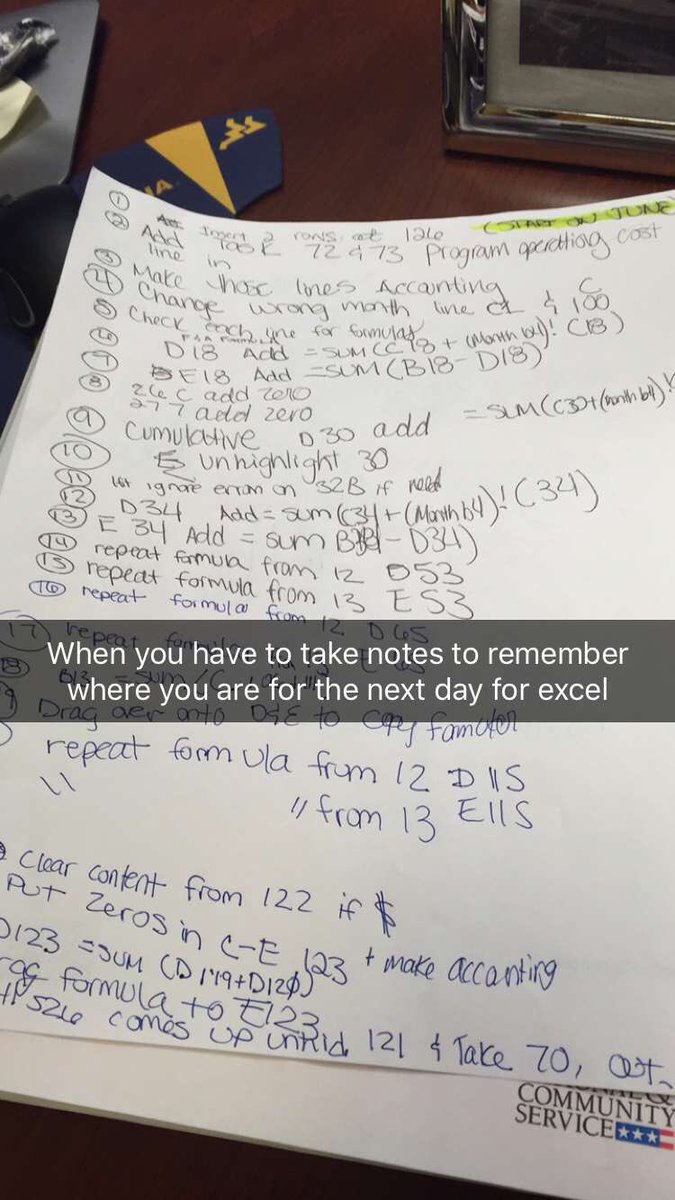 NA.
(START ON JUNE
① Insert 2 rows at 126
② Add 72 & 73 Program operating cost
line in
③ Make those lines Accounting
④ Change wrong month line C1 & C 100
⑤ Check each line for formulas
D18 Add =SUM(C18 + (Month b4)! C18)
E18 Add =SUM(B18-D18)
⑧ 26 C add zero
277 add zero
⑨ Cumulative D30 add =SUM(C30+(month b4)!
⑩ unhighlight 30
⑪ ignore error on 32B if need
⑫ D34 Add=sum(C34+(Month b4)!(C34)
⑬ E 34 Add = sum B - D34)
⑭ repeat formula from 12 D53
⑮ repeat formula from 13 E53
⑯ repeat formula from 12 D65
17 repeat
When you have to take notes to remember
where you are for the next day for excel
Drag over onto D&E to copy
repeat formula from 12 D115
" "from 13 E115
Clear content from 122 if $
Put Zeros in C-E 123 + make accounting
D123 =SUM (D119+D120)
formula to E123
526 comes up 121 & Take 70,
COMMUNITY
SERVICE